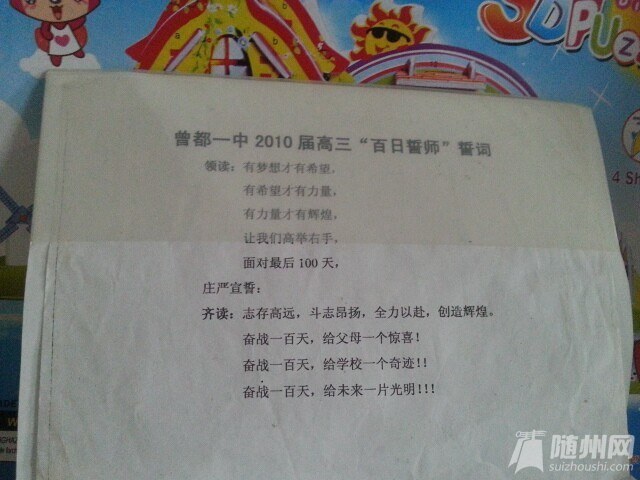 3D PUZ
曾都一中 2010 届高三“百日誓师”誓词
领读：有梦想才有希望，
有希望才有力量，
有力量才有辉煌，
让我们高举右手，
面对最后 100 天，
庄严宣誓：
齐读：志存高远，斗志昂扬，全力以赴，创造辉煌。
奋战一百天，给父母一个惊喜！
奋战一百天，给学校一个奇迹！！
奋战一百天，给未来一片光明！！！
4 Sh
随州网
suizhoushi.com